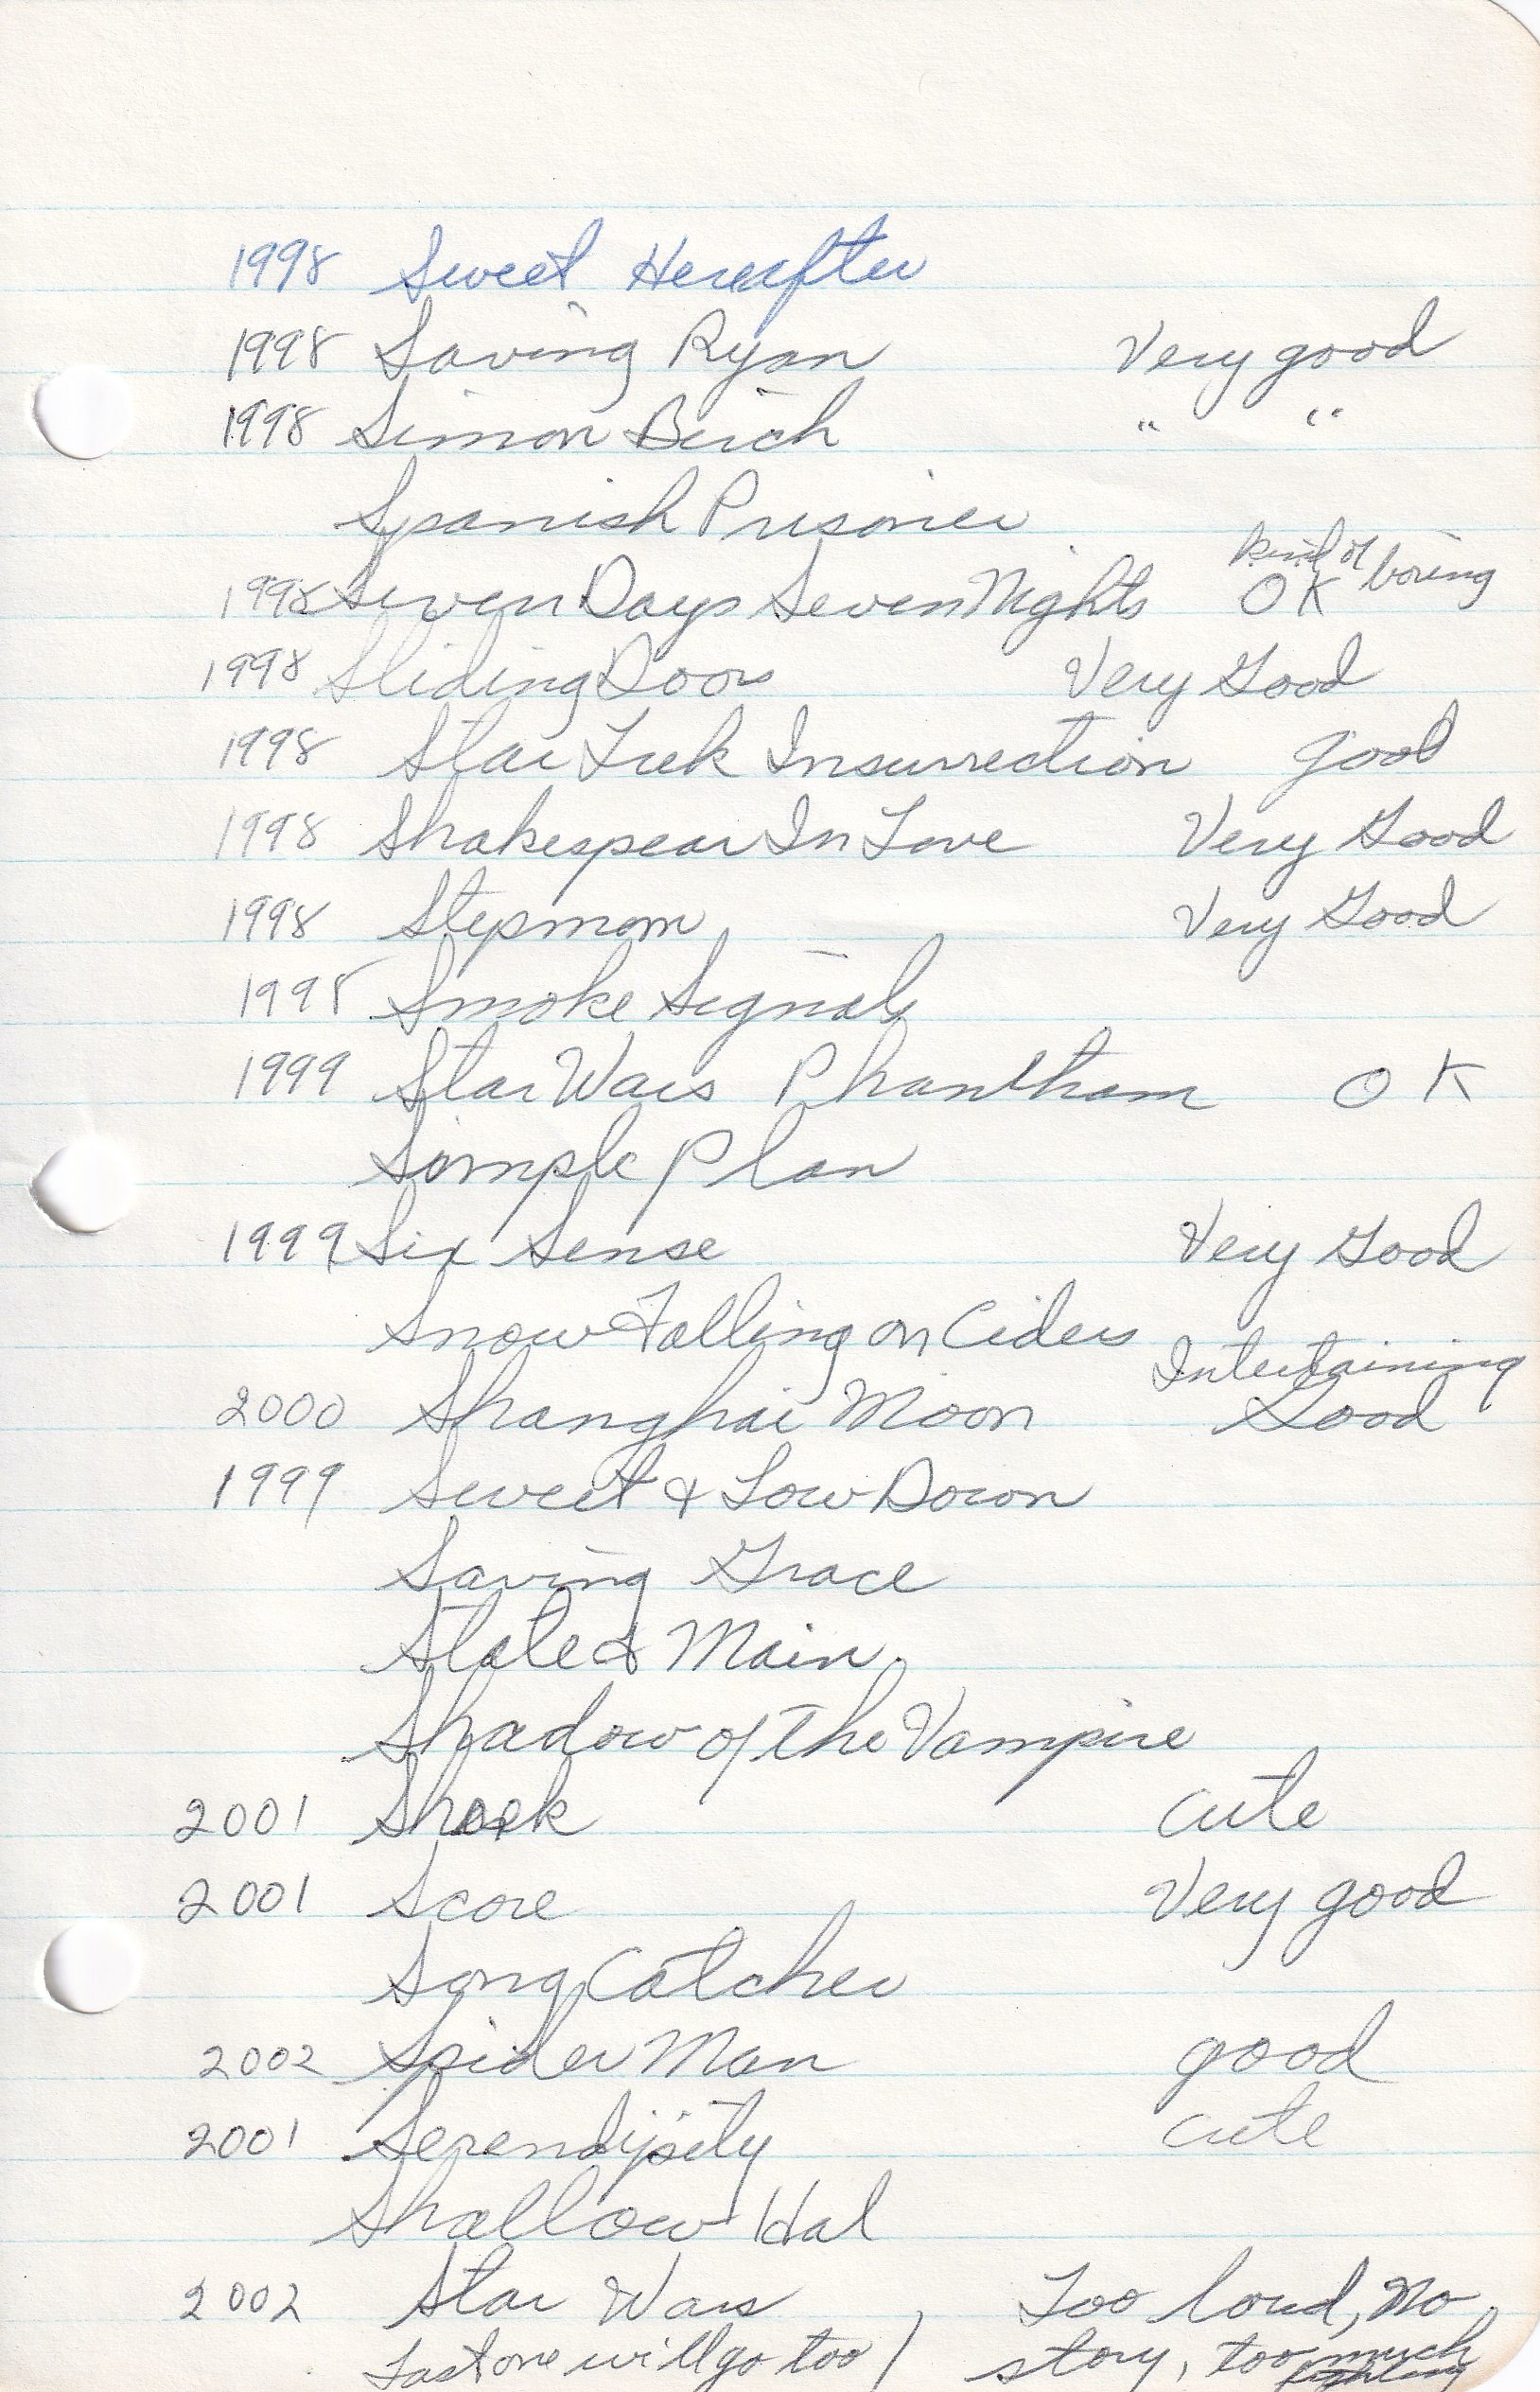 1998 Sweet Hereafter
1998 Saving Ryan Very good
1998 Simon Birch " "
Spanish Prisoner
kind of boring
1998 Seven Days Seven Nights OK
1998 Sliding Doors Very Good
1998 Star Trek Insurrection good
1998 Shakespear In Love Very Good
1998 Stepmom Very Good
1998 Smoke Signals
1999 Star Wars Phantham OK
Simple Plan
1999 Six Sense Very Good
Snow Falling on Ciders
Intertaining
2000 Shanghai Moon Good
1999 Sweet & Low Down
Saving Grace
State & Main
Shadow of the Vampire
2001 Shrek cute
2001 Score Very good
Song Catcher
2002 Spider Man good
2001 Serendipity cute
Shallow Hal
2002 Star Wars Too loud, No
Last one will go too / story, too much
fighting